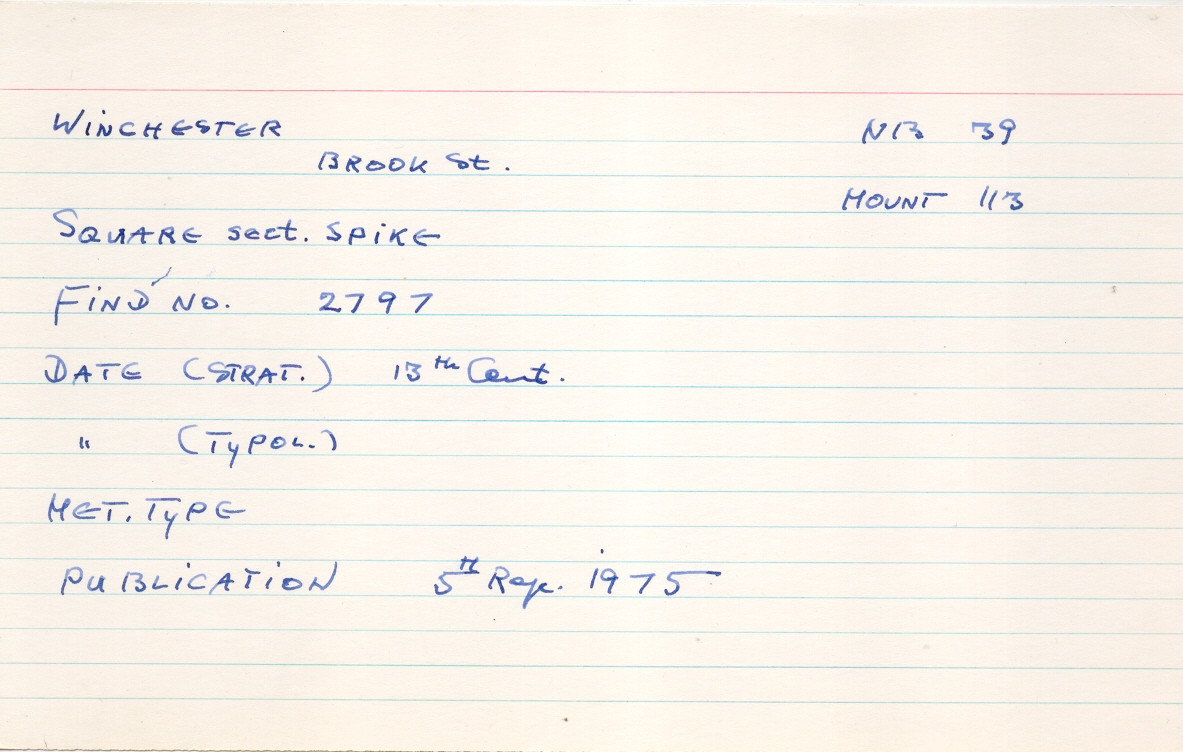 WINCHESTER
NB 39
BROOK St.
MOUNT 113
SQUARE sect. SPIKE
FIND NO. 2797
DATE (STRAT.) 13th Cent.
" (TYPOL.)
MET. TYPE
PUBLICATION 5th Rep. 1975